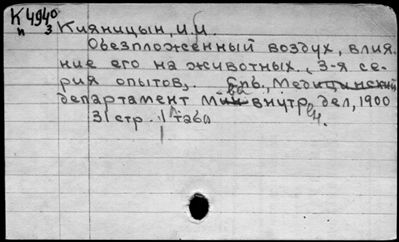 К 4940
и 3
Кияницын, И.И.
Обезпложенный воздух, влия-
ние его на животных. 3-я се-
рия опытов,. Спб., Медицинский
департамент Мин-ва внутрен. дел, 1900
31 стр. 1 табл